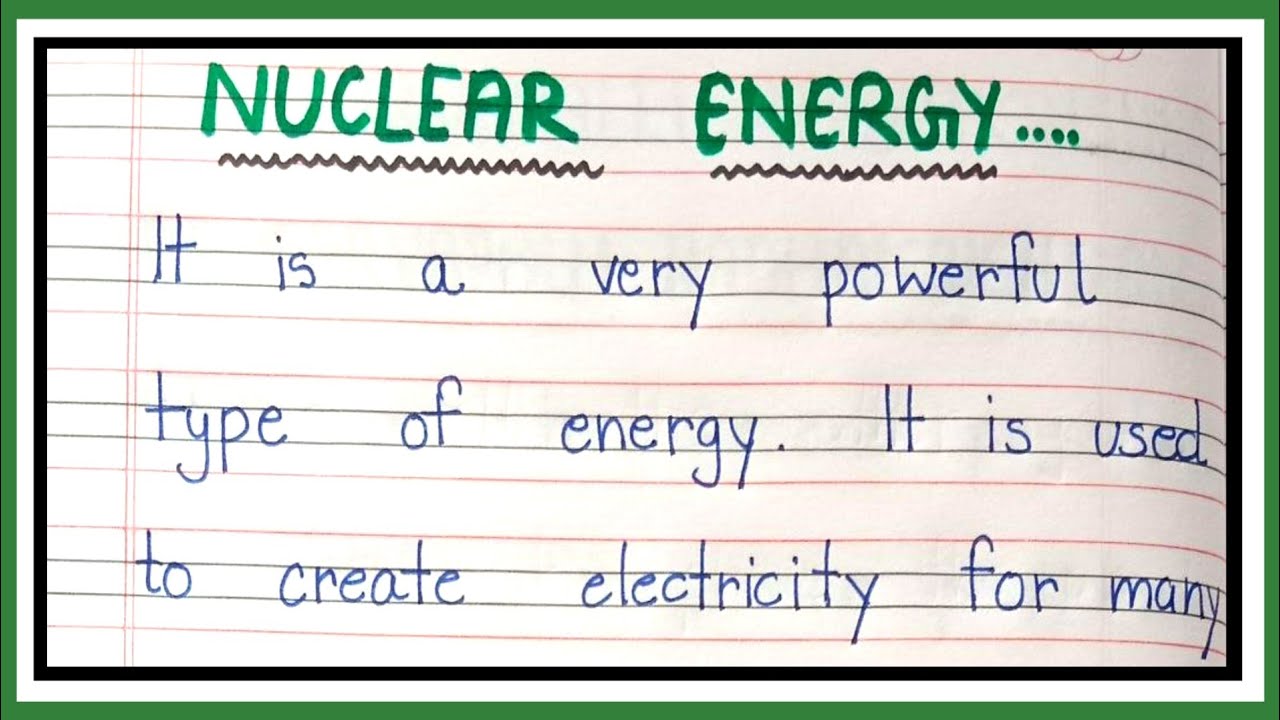 NUCLEAR ENERGY....
It is a very powerful
type of energy. It is used
to create electricity for many